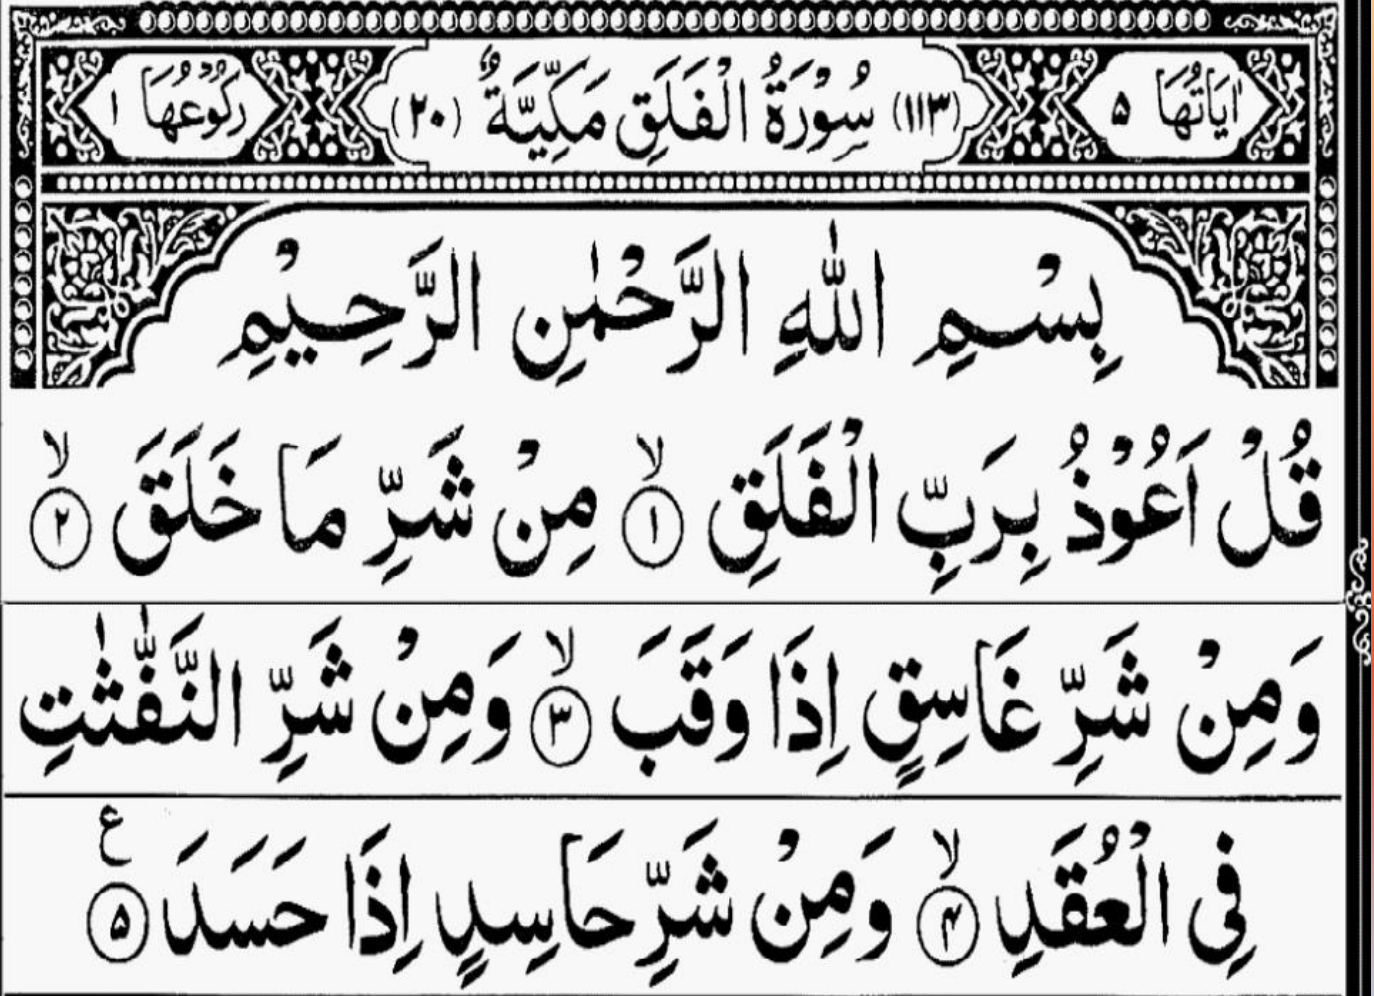 اٰيَاتُهَا ۵ (۱۱۳) سُوْرَةُ الْفَلَقِ مَكِّيَّةٌ (۲۰) رُكُوْعُهَا ۱
بِسْمِ اللّٰهِ الرَّحْمٰنِ الرَّحِيْمِ
قُلْ اَعُوْذُ بِرَبِّ الْفَلَقِ ۙ ۱ مِنْ شَرِّ مَا خَلَقَ ۙ ۲
وَمِنْ شَرِّ غَاسِقٍ اِذَا وَقَبَ ۙ ۳ وَمِنْ شَرِّ النَّفّٰثٰتِ
فِی الْعُقَدِ ۙ ۴ وَمِنْ شَرِّ حَاسِدٍ اِذَا حَسَدَ ۵ ع